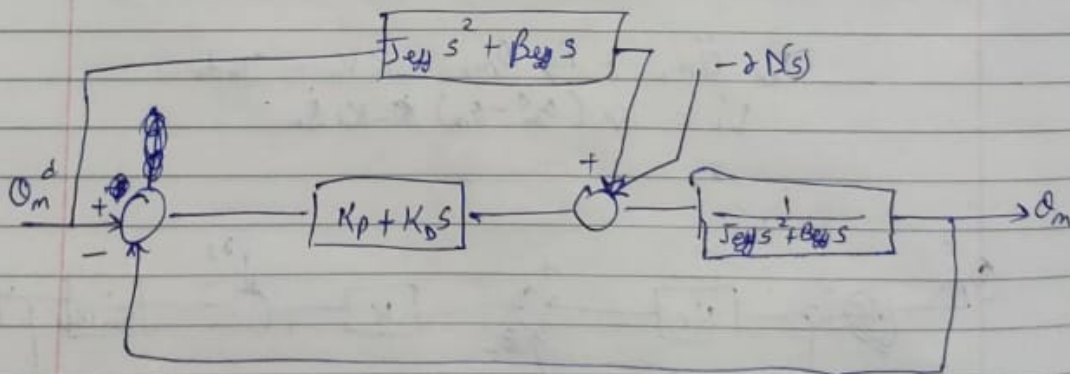 Jeff s² + Beff s
- 2 D(s)
+
θm^d
+
-
Kp + KD s
1
Jeff s² + Beff s
θm